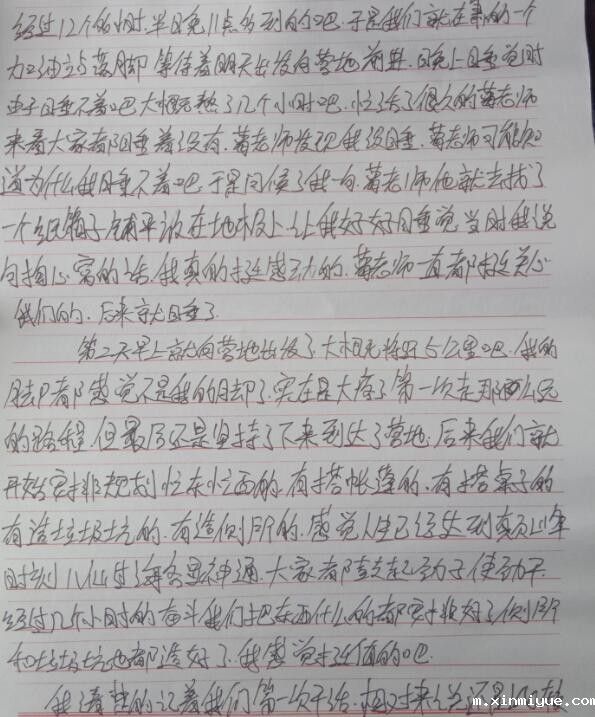 经过12个的小时.半日晚11点多到的个吧.于是我们就在事的一个
力口油立与落脚 等待着明天出发向营地前进.日晚上睡觉时
由于睡不着吧大概熬了几个小时吧.忙活了很久的葛老师
来看大家都睡着没有.葛老师发现我没睡.葛老师可能知
道为什么我睡不着吧.于是问候了我一句.葛老师他就去找了
一个纸箱子铺平放在地板上.让我好好睡觉 当时我说
句掏心窝的话.我真的挺感动的.葛老师一直都挺关心
我们的.后来就睡了
第二天早上就向营地出发了 大概先将5公里吧.我的
脚都感觉不是我的脚了.实在是太疼了 第一次走那么远
的路程.但最后还是坚持了下来到达了营地.后来我们就
开始安排规划 忙东忙西的.有搭帐篷的.有搭桌子的
有造垃圾坑的.有造侧所的.感觉人生已经达到真正
时刻 八仙过海各显神通.大家都鼓起劲子使劲干
经过几个小时的奋斗我们把东西什么的都安排好了侧所
和垃圾坑也都造好了.我感觉挺值的吧
我清楚的记着我们第一次干活.相对来说还是
m.xinmiyue.com